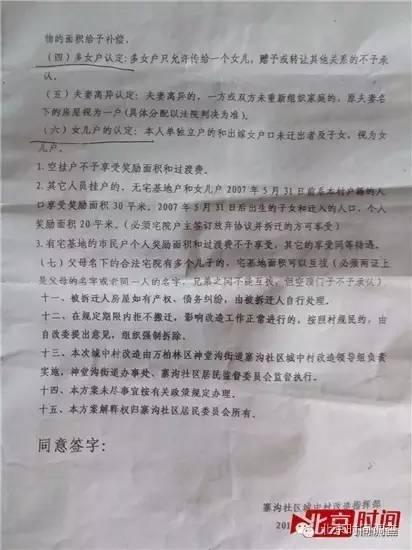 物的面积给予补偿。
（四）多女户认定：多女户只允许传给一个女儿，赠予或转让其他关系的不予承
认。
（五）夫妻离异认定：夫妻离异的，一方或双方未重新组织家庭的，原夫妻名
下的房屋视为一户（具体分配以法院判决为准）。
（六）女儿户的认定：本人单独立户的和出嫁女户口未迁出者及子女，视为女
儿户。
1.空挂户不予享受奖励面积和过渡费。
2.其它人员挂户的、无宅基地户和女儿户2007年5月31日前在本村户籍的人
口享受奖励面积30平米。2007年5月31日后出生的子女和迁入的人口，个人
奖励面积20平米。（必须宅院户主签订放弃协议并拆迁的方可享受）
3.有宅基地的市民户个人奖励面积和过渡费不予享受，其它的享受同等待遇。
（七）父母名下的合法宅院有多个儿子的，宅基地面积可以互拔（必须两证上
是父母的名字或者同一人的名字，兄弟之间不能互拔，但空顶门子不予承认）
十一、被拆迁人房屋如有产权、债务纠纷，由被拆迁人自行处理。
十二、在规定期限内拒不搬迁，影响改造工作正常进行的，按照村规民约，由
自改委提出意见，组织强制拆除。
十三、本次城中村改造由万柏林区神堂沟街道寨沟社区城中村改造领导组负责
实施，神堂沟街道办事处、寨沟社区居民监督委员会监督执行。
十四、本方案未尽事宜按有关政策规定办理。
十五、本方案解释权归寨沟社区居民委员会所有。
同意签字：
寨沟社区城中村改造指挥部
201
北京时间